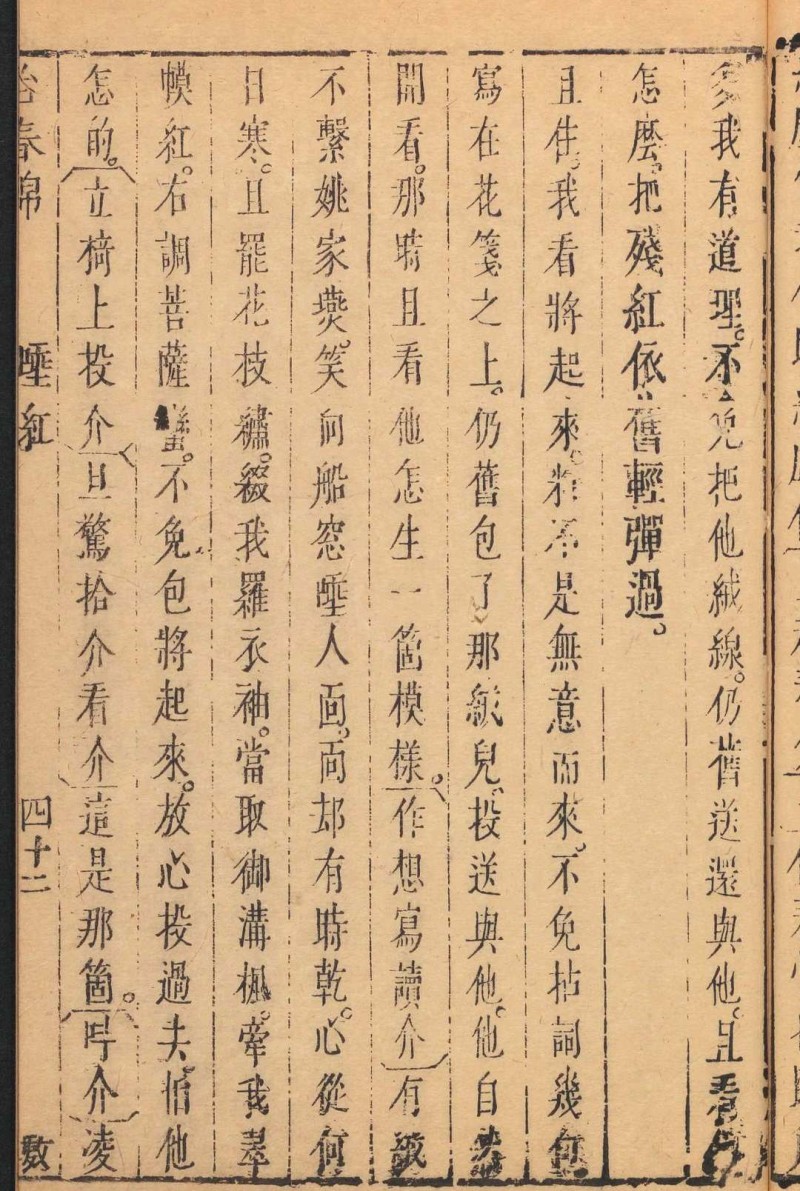 我有道理。不免把他緘線。仍舊送還與他。且看
怎麽。把殘紅依舊輕彈過。
且住。我看將起來。料不是無意而來。不免拈詞幾句
寫在花箋之上。仍舊包了那緘兒。投送與他。他自
開看。那時且看他怎生一箇模樣。作想寫讀介有
不繫姚家燕。笑向船窓睡人面。面却有時乾。心從何
日寒。且罷花枝繡。綴我羅衣袖。當取御溝楓。牽我翠
幙紅。右調菩薩蠻。不免包將起來。放心投過去。怕他
怎的。立椅上投介旦驚拾介看介這是那箇。吟介凌
春錦 睡紅 四十二